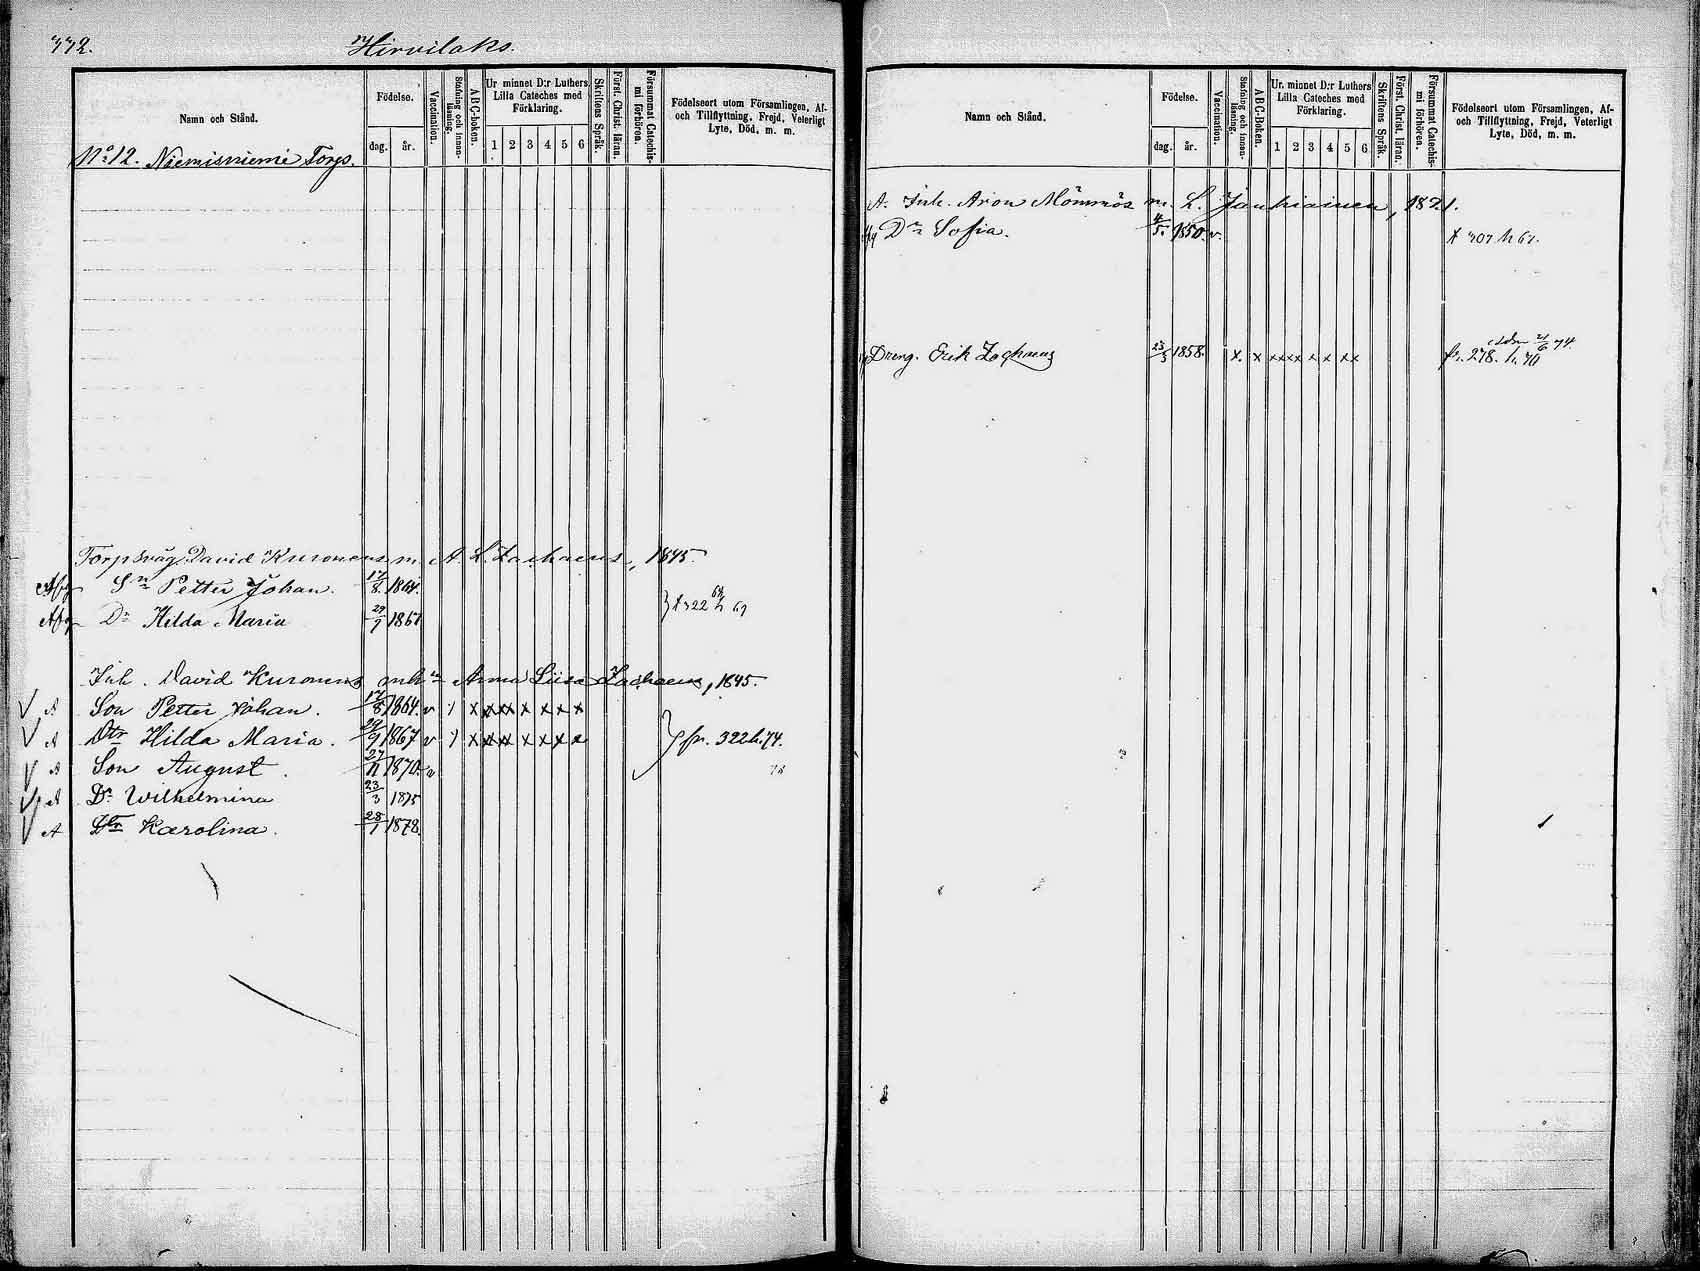 332. Hirvilaks.
Namn och Stånd.
Födelse.
dag. år.
Vaccination.
Stafning och innanläsning.
ABC-boken.
Ur minnet D:r Luthers
Lilla Cateches med
Förklaring.
1 2 3 4 5 6
Skriftens Språk.
Först. Christ. läran.
Försummat Catechis-
mi förhören.
Födelseort utom Församlingen, Af-
och Tillflyttning, Frejd, Veterligt
Lyte, Död, m. m.
No 12. Niemisniemi Torp.
Torp David Kuronens m. A. L. Zachaeus, 1845.
Afg Sn Petter Johan. 17/8 1864.
Afg Dr Hilda Maria 29/9 1867
322
Inh. David Kuronens Anna Liisa Zachaeus, 1845.
√ A Son Petter Johan. 17/8 1864. v x x x x x x x x
√ A Dtr Hilda Maria. 29/9 1867 v x x x x x x x x
fr. 322 h. 74.
√ A Son August. 27/11 1870. v
√ A Dr Wilhelmina 23/3 1875
√ A Dtr Karolina. 28/1 1878.
Namn och Stånd.
Födelse.
dag. år.
Vaccination.
Stafning och innanläsning.
ABC-Boken.
Ur minnet D:r Luthers
Lilla Cateches med
Förklaring.
1 2 3 4 5 6
Skriftens Språk.
Först. Christ. läran.
Försummat Catechis-
mi förhören.
Födelseort utom Församlingen, Af-
och Tillflyttning, Frejd, Veterligt
Lyte, Död, m. m.
A. Inh. Aron Mömmös m. L. Jauhiainen, 1821.
Dr Sofia. 4/5. 1850. v.
Dreng. Erik Zachaeus 23/3 1858. x. x xxxx x x xx
fr. 278. h. 70
21/6 74.